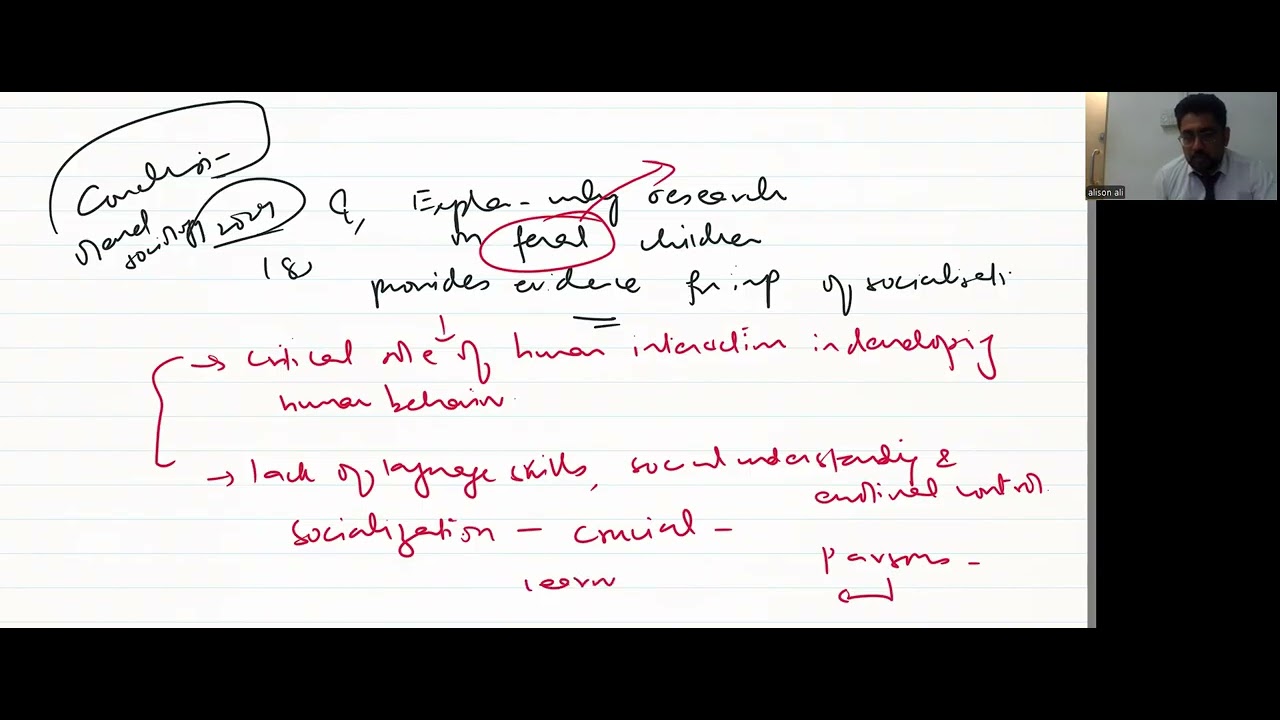 2024
18
Q, Explain why research
on feral children
provides evidence for imp of socialisati
→ critical role of human interaction in developing
human behavior
→ lack of language skills, social understanding &
emotional control.
socialization – crucial –
learn
Parsons –
alison ali